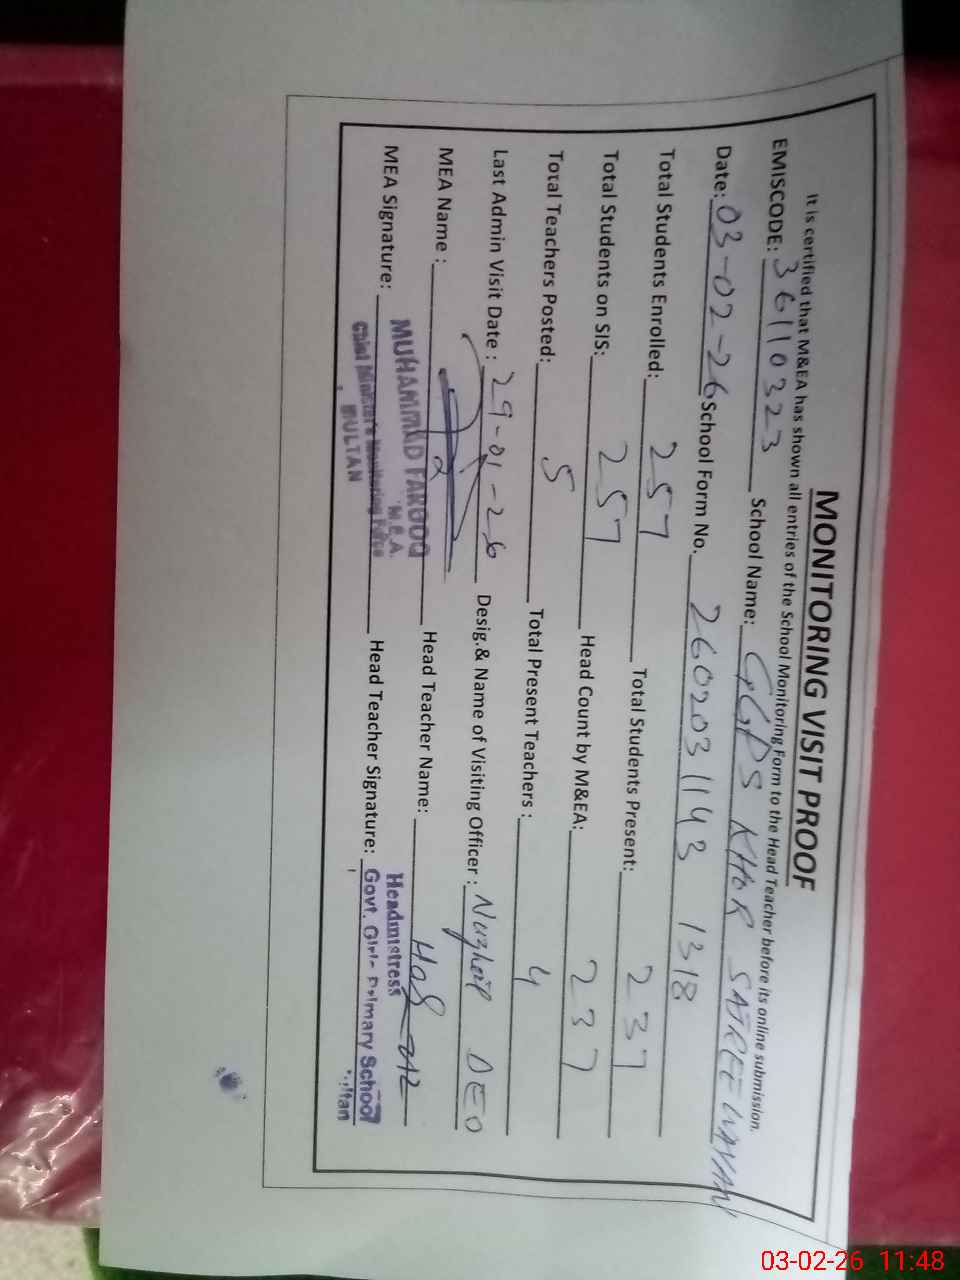 MONITORING VISIT PROOF
It is certified that M&EA has shown all entries of the School Monitoring Form to the Head Teacher before its online submission.
EMISCODE: 36110323 School Name: GGPS KHOR
Date: 03-02-26 School Form No. 2602031143 1318
Total Students Enrolled: 257 Total Students Present: 237
Total Students on SIS: 257 Head Count by M&EA: 237
Total Teachers Posted: 5 Total Present Teachers : 4
Last Admin Visit Date : 29-01-26 Desig.& Name of Visiting Officer : DEO
MEA Name : Head Teacher Name:
MUHAMMAD FAROOQ
M.E.A.
Headmistress
MEA Signature: Head Teacher Signature: Govt. Girls Primary School
Chief Minister's Monitoring Force
MULTAN
03-02-26 11:48